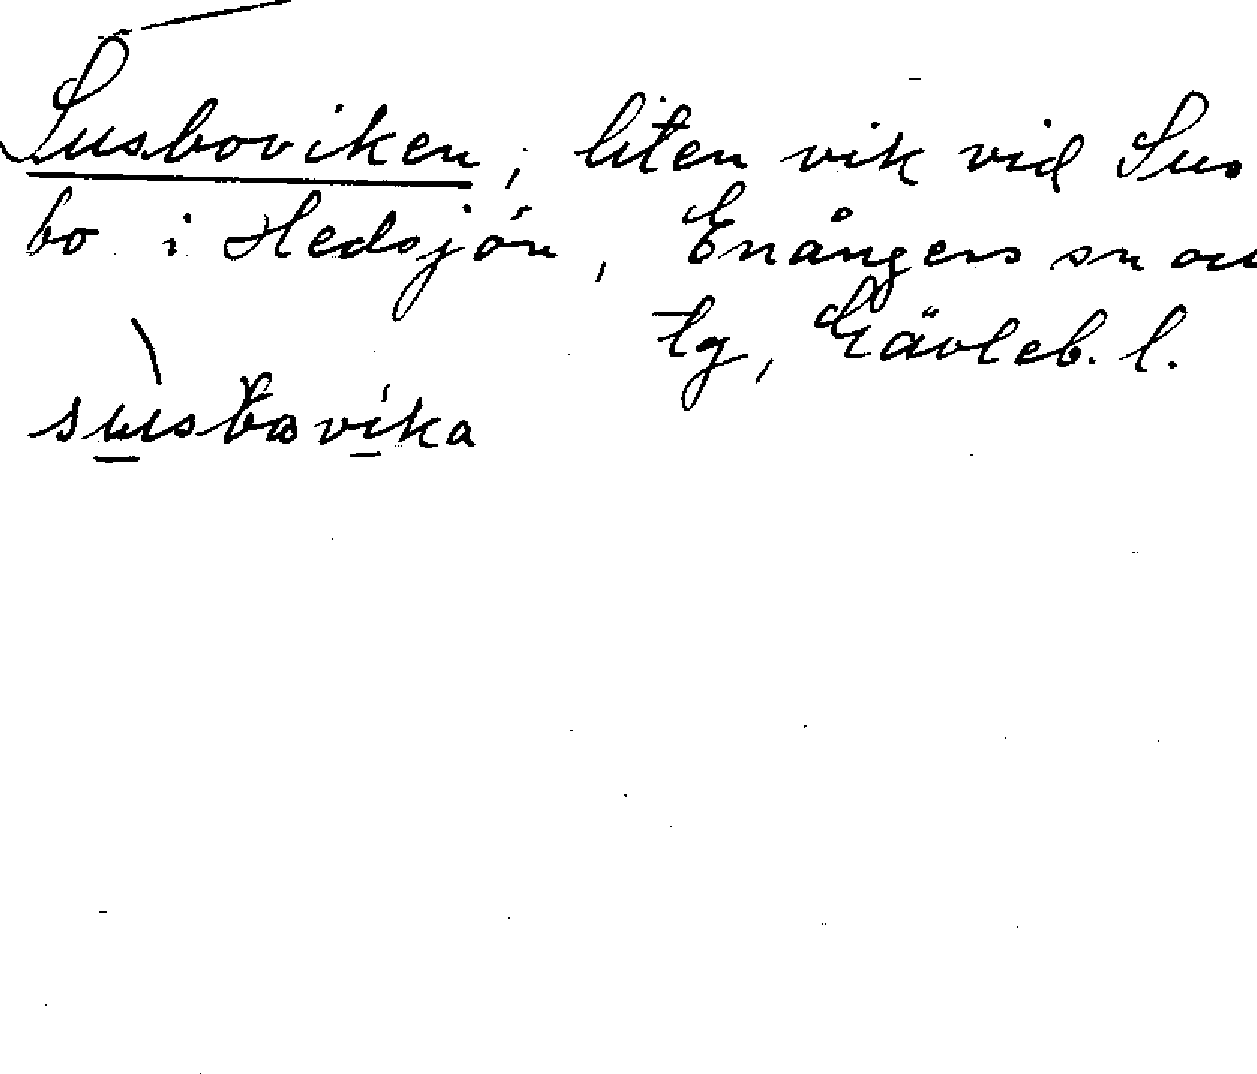 Susboviken, liten vik vid Sus
bo i Hedsjön, Enångers sn och
tg, Gävleb. l.
susbovika